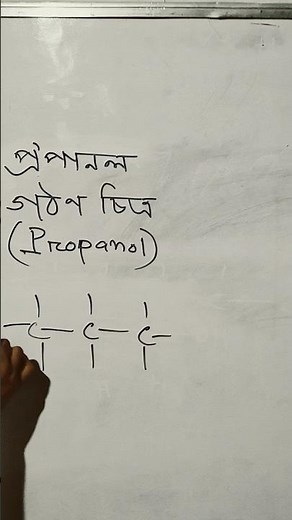 প্রপানল
গঠণ চিত্র
(Propanol)
C — C — C